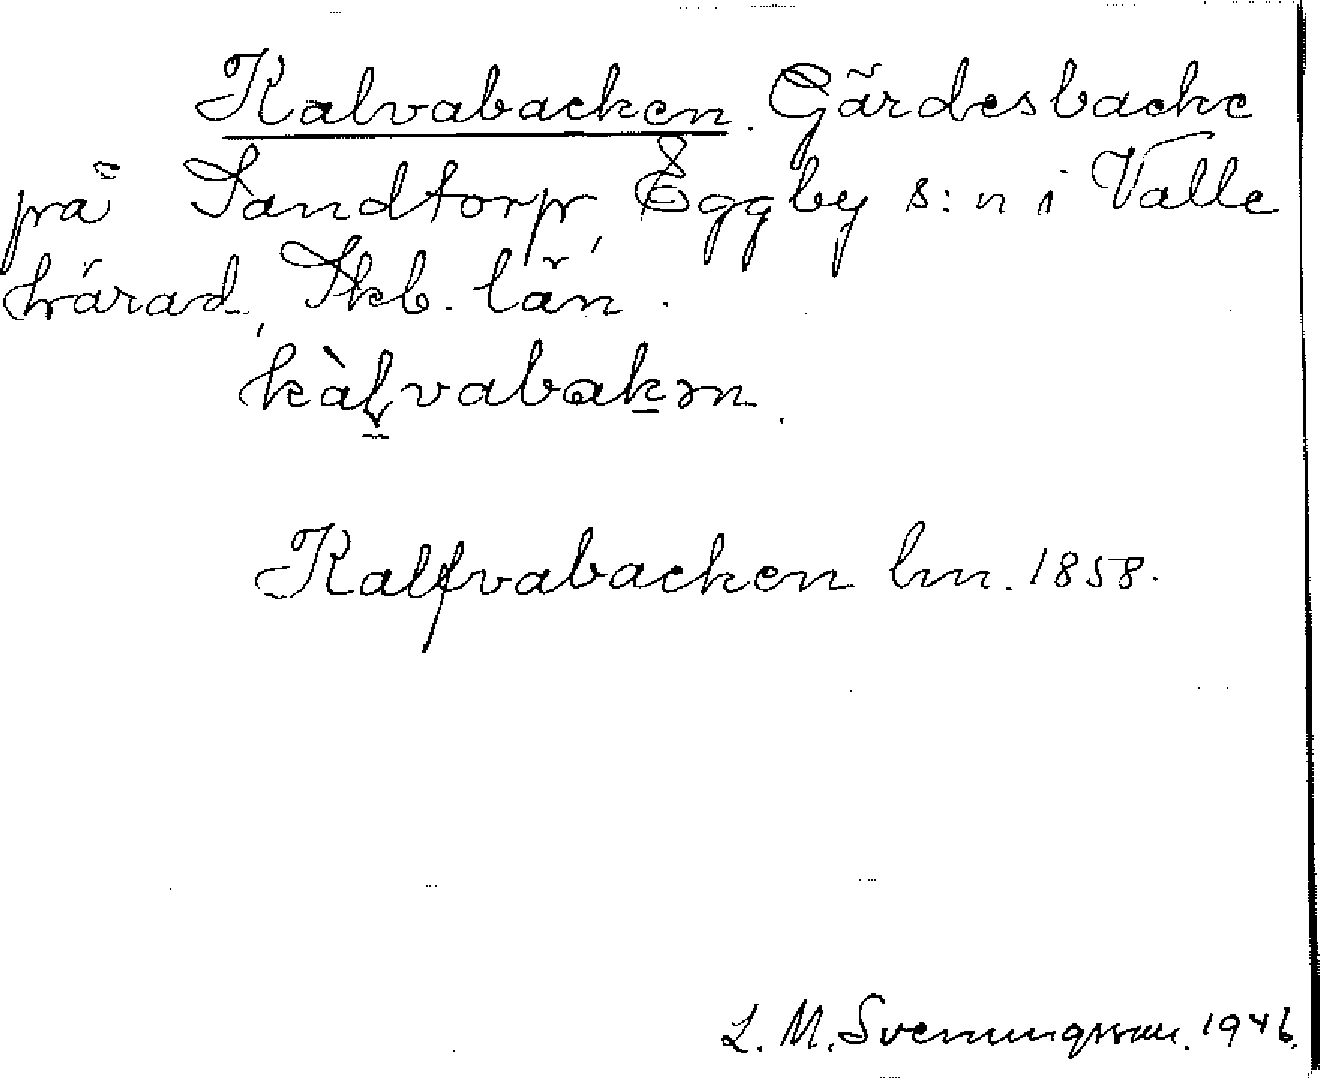 Kalvabacken. Gärdesbacke
på Sandtorp, Eggby s:n i Valle
härad, Skb. län.
kàlvabakən.
Kalfvabacken lm. 1858.
L. M. Svenungsson. 1946.